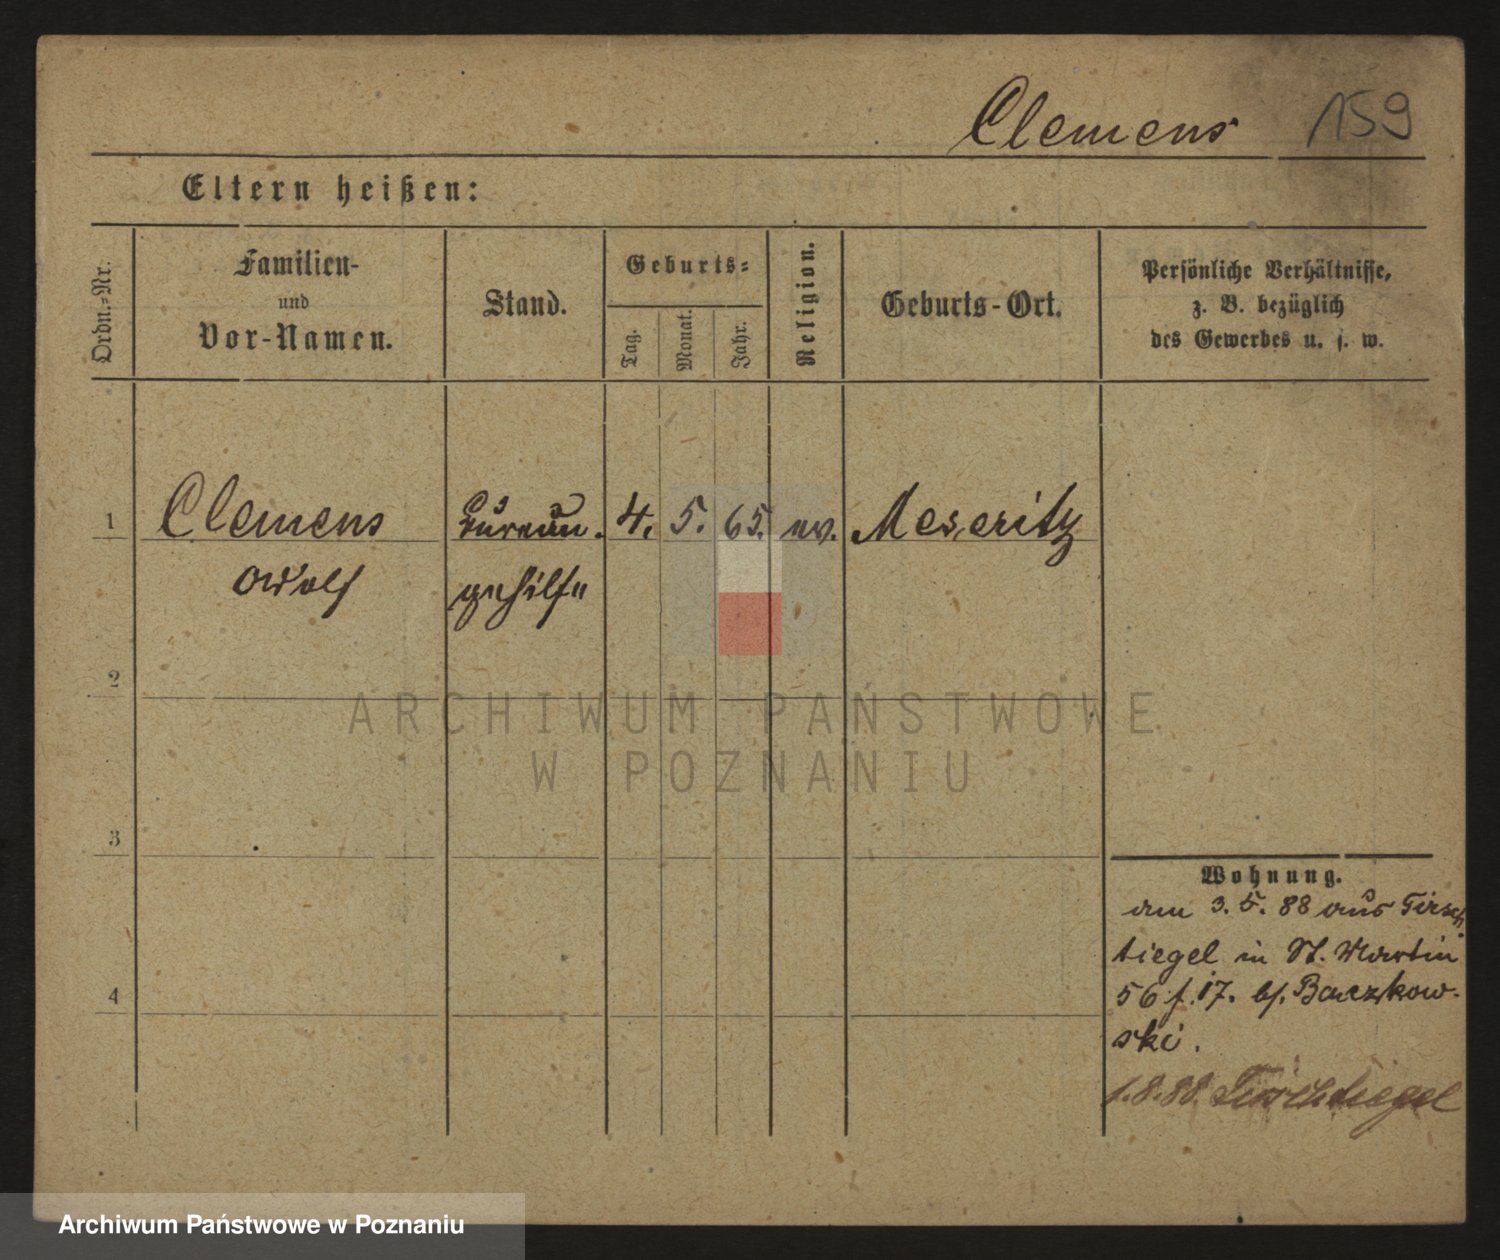 Clemens 159
Eltern heißen:
Ordn.=Nr.
Familien-
und
Vor-Namen.
Stand.
Geburts=
Tag.
Monat.
Jahr.
Religion.
Geburts-Ort.
Persönliche Verhältnisse,
z. B. bezüglich
des Gewerbes u. s. w.
1 Clemens Bureau- 4. 5. 65. ev. Meseritz
Adolf gehilfe
2
ARCHIWUM PAŃSTWOWE
W POZNANIU
3
Wohnung.
am 3. 5. 88 aus Tirsch
tiegel in St. Martin
4
56 f. 17. bj. Baczkow-
ski.
1.8.88 Tirschtiegel
Archiwum Państwowe w Poznaniu